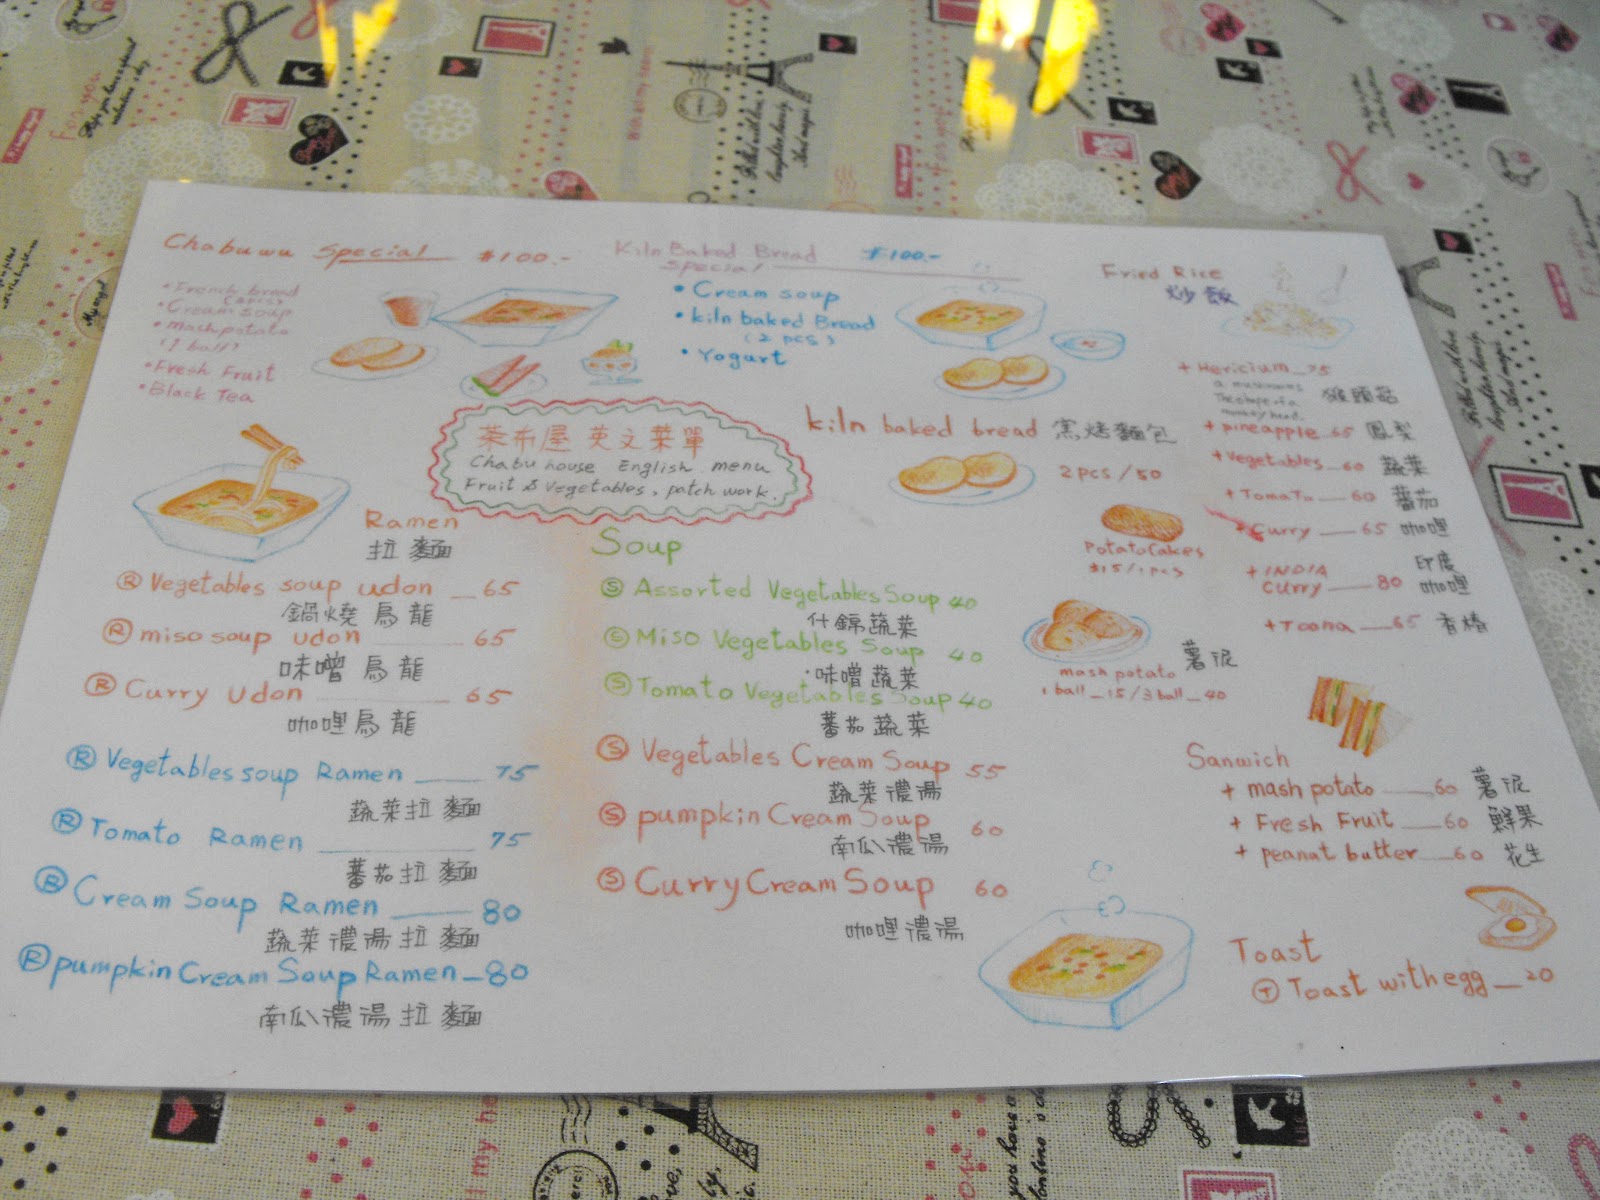 Chabuwu Special $100.-
• French bread
(2pcs)
• Cream soup
• mash potato
(1 ball)
• Fresh Fruit
• Black Tea
Kiln Baked Bread $100.-
Special
• Cream soup
• kiln baked Bread
(2 pcs)
• Yogurt
Fried Rice
炒飯
+ Hericium _ 75
a mushrooms
The shape of a
monkey head.
猴頭菇
+ pineapple _ 65 鳳梨
+ vegetables _ 60 蔬菜
+ Tomato __ 60 蕃茄
+ Curry __ 65 咖哩
+ INDIA 印度
curry __ 80 咖哩
+ Toona __ 65 香椿
茶布屋 英文菜單
Chabu house English menu
Fruit & Vegetables, patch work.
kiln baked bread 窯烤麵包
2 pcs / 50
Potato Cakes
$15 / 1 pcs
mash potato 薯泥
1 ball _ 15 / 3 ball _ 40
Ramen
拉麵
Ⓡ Vegetables soup udon _ 65
鍋燒烏龍
Ⓡ miso soup udon ___ 65
味噌烏龍
Ⓡ Curry udon ___ 65
咖哩烏龍
Ⓡ Vegetables soup Ramen ___ 75
蔬菜拉麵
Ⓡ Tomato Ramen ___ 75
蕃茄拉麵
Ⓡ Cream Soup Ramen ___ 80
蔬菜濃湯拉麵
Ⓡ pumpkin Cream Soup Ramen _ 80
南瓜濃湯拉麵
Soup
Ⓢ Assorted Vegetables Soup 40
什錦蔬菜
Ⓢ Miso Vegetables Soup 40
味噌蔬菜
Ⓢ Tomato Vegetables Soup 40
蕃茄蔬菜
Ⓢ Vegetables Cream Soup 55
蔬菜濃湯
Ⓢ pumpkin Cream Soup 60
南瓜濃湯
Ⓢ Curry Cream Soup 60
咖哩濃湯
Sanwich
+ mash potato __ 60 薯泥
+ Fresh Fruit __ 60 鮮果
+ peanut butter __ 60 花生
Toast
Ⓣ Toast with egg __ 20